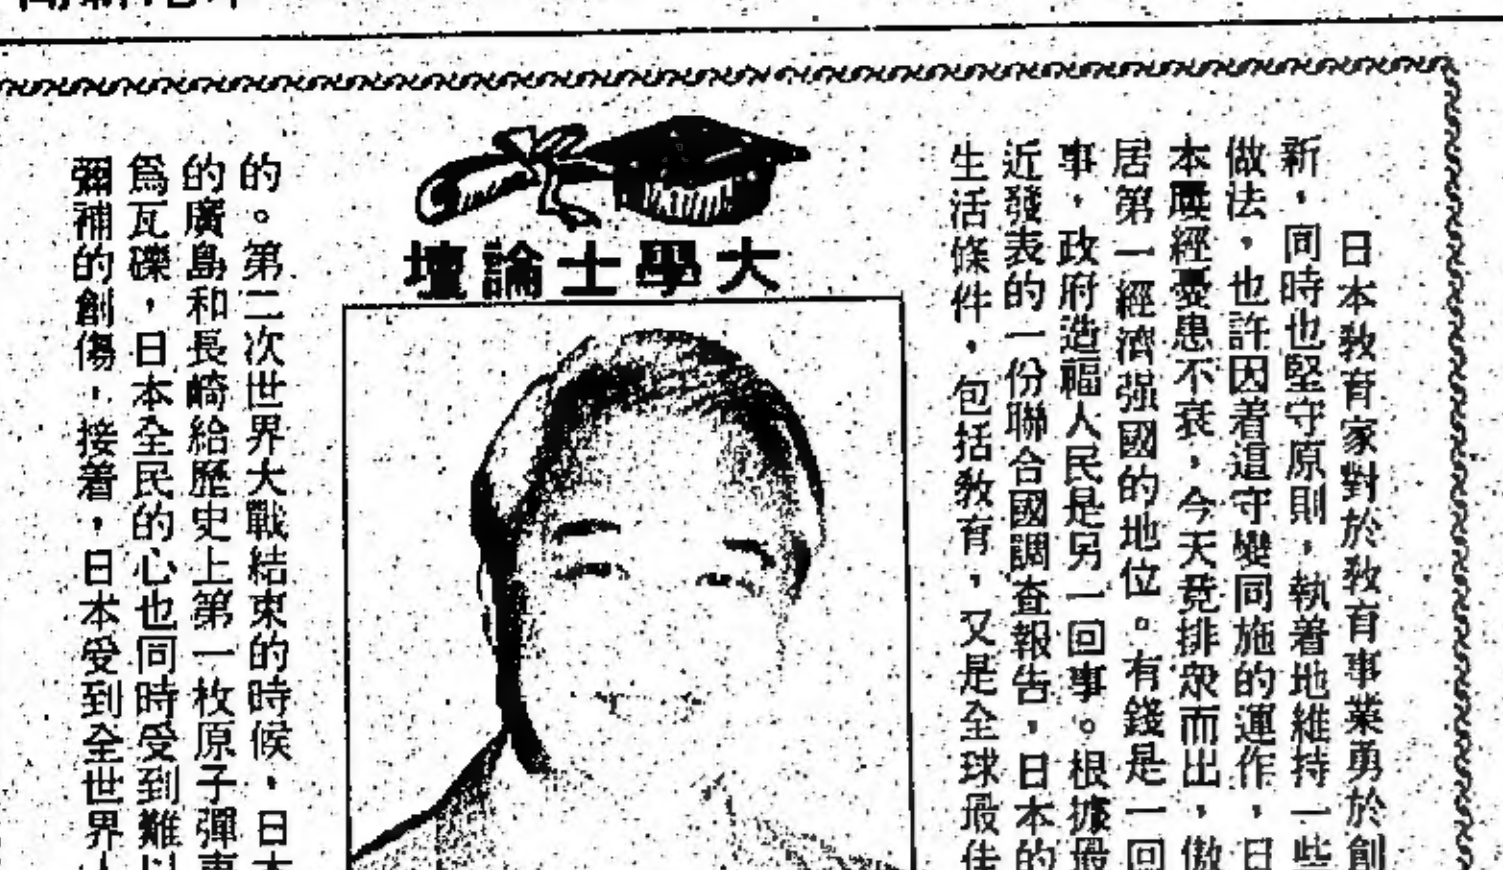 大學士論壇
日本教育家對於教育事業勇於創
新，同時也堅守原則，執着地維持一些
做法，也許因着這守變同施的運作，日
本歷經憂患不衰，今天竟排衆而出，傲
居第一經濟强國的地位。有錢是一回
事，政府造福人民是另一回事。根據最
近發表的一份聯合國調查報告，日本的
生活條件，包括教育，又是全球最佳
的。第二次世界大戰結束的時候，日本
的廣島和長崎給歷史上第一枚原子彈
爲瓦礫，日本全民的心也同時受到難以
彌補的創傷，接着，日本受到全世界人